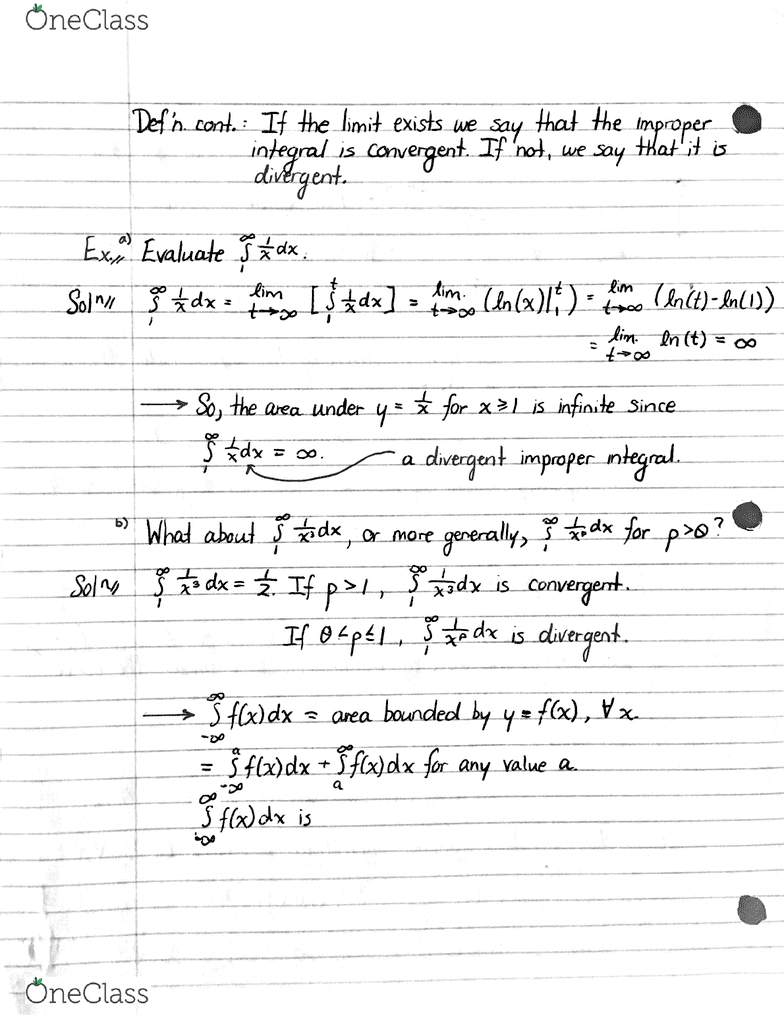 OneClass
Def'n. cont.: If the limit exists we say that the improper
integral is convergent. If not, we say that it is
divergent.
Ex,, a) Evaluate ∫₁^∞ 1/x dx.
Sol'n// ∫₁^∞ 1/x dx = lim t→∞ [∫₁^t 1/x dx] = lim. t→∞ (ln(x)|₁^t) = lim t→∞ (ln(t)-ln(1))
= lim. t→∞ ln(t) = ∞
→ So, the area under y = 1/x for x ≥ 1 is infinite since
∫₁^∞ 1/x dx = ∞. a divergent improper integral.
b) What about ∫₁^∞ 1/x³ dx, or more generally, ∫₁^∞ 1/x^p dx for p>0?
Sol'n// ∫₁^∞ 1/x³ dx = 1/2. If p>1, ∫₁^∞ 1/x³ dx is convergent.
If 0<p≤1, ∫₁^∞ 1/x^p dx is divergent.
→ ∫_-∞^∞ f(x)dx = area bounded by y = f(x), ∀x.
= ∫_-∞^a f(x)dx + ∫_a^∞ f(x)dx for any value a.
∫_-∞^∞ f(x)dx is
OneClass